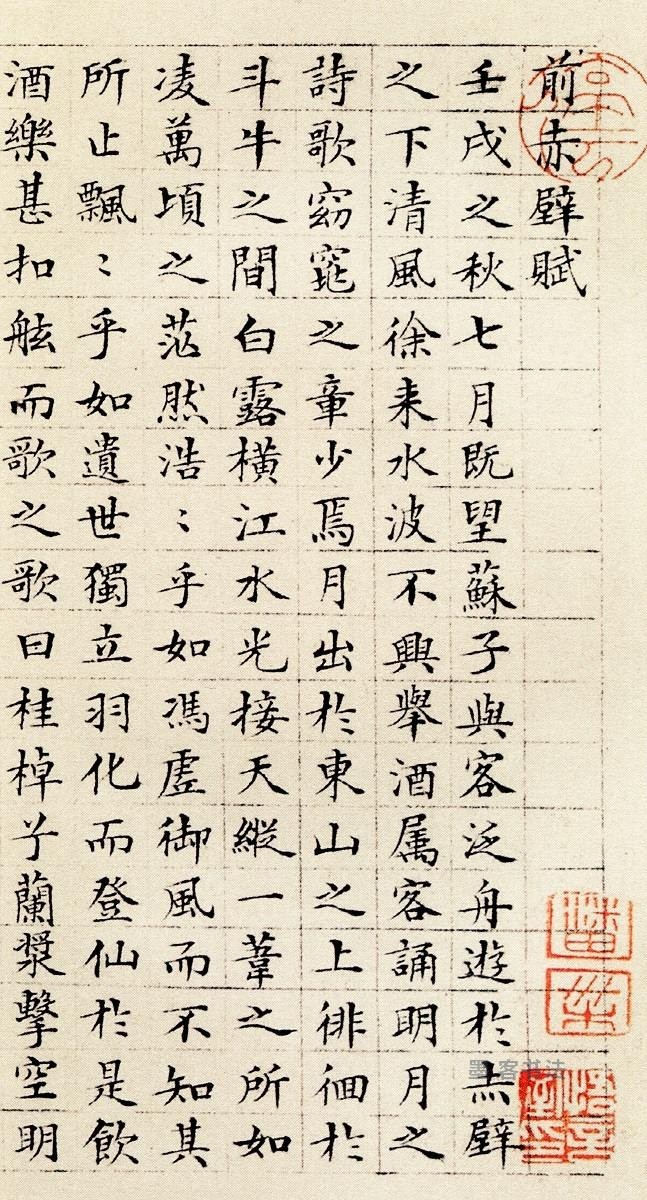 前赤壁賦
壬戌之秋七月既望蘇子與客泛舟遊於赤壁
之下清風徐来水波不興舉酒属客誦明月之
詩歌窈窕之章少焉月出於東山之上徘徊於
斗牛之間白露橫江水光接天縱一葦之所如
凌萬頃之茫然浩〻乎如馮虛御風而不知其
所止飄〻乎如遺世獨立羽化而登仙於是飲
酒樂甚扣舷而歌之歌曰桂棹兮蘭槳擊空明
墨客书法